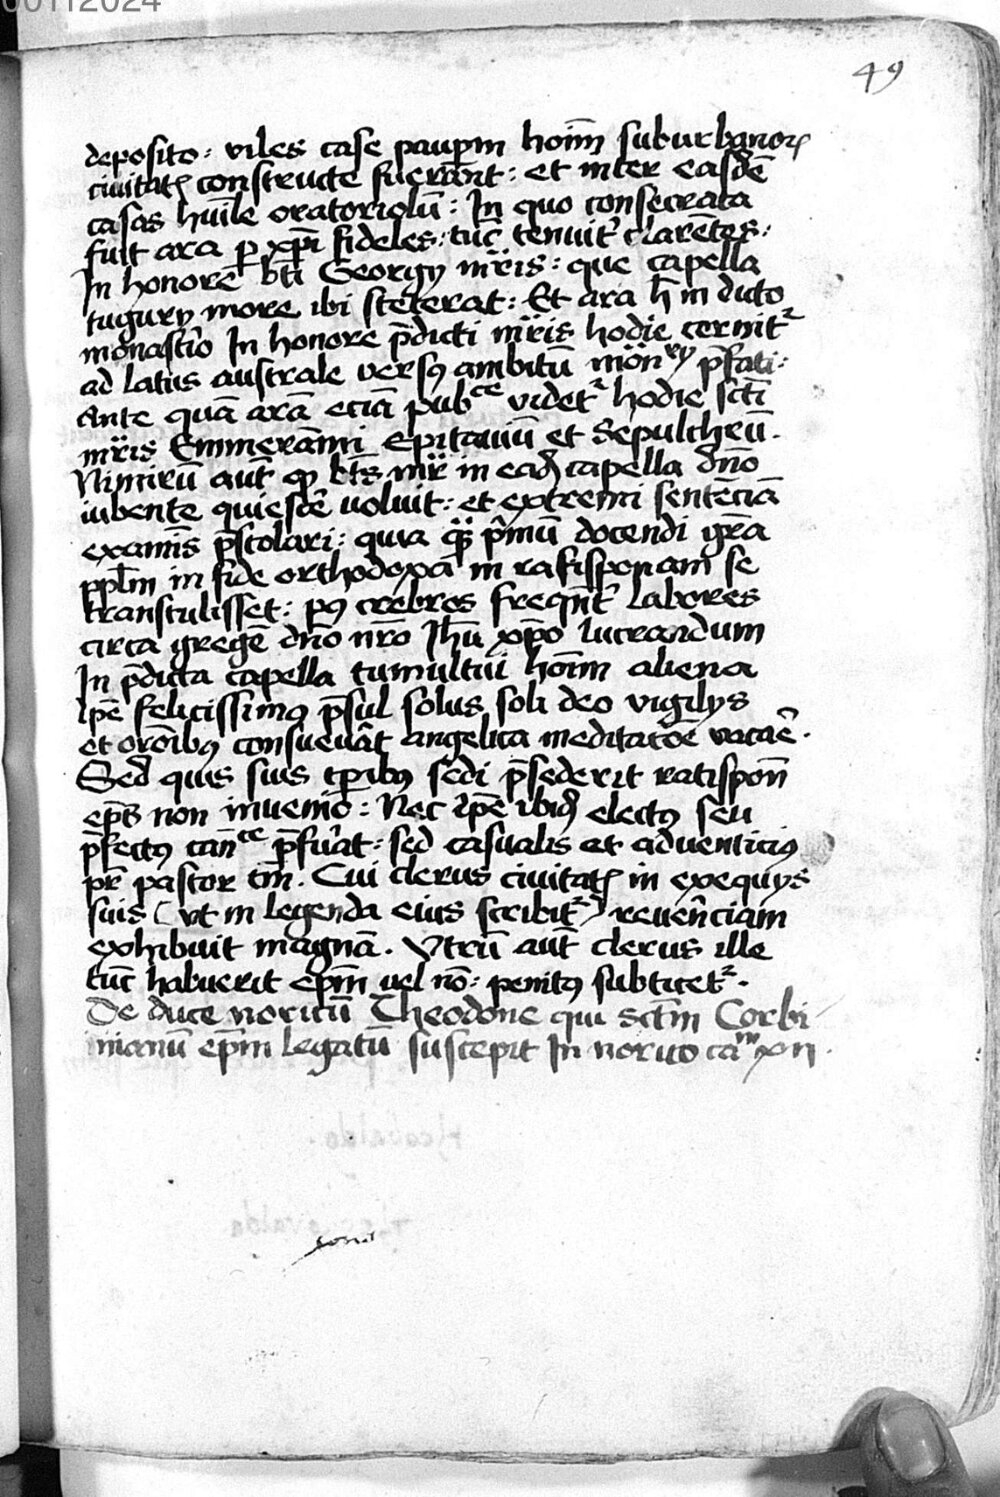 00112024
49
deposito: viles case paupm̄ hoīm suburbanoꝝ
ciuitatꝭ constructe fuerānt: et inter easdē
casas huīle oratoriolū: In quo consecrata
fuit ara ꝑ xp̄i fideles: tūc tenuit᷑ clarētes:
In honorē bt̄i Georgij mr̄is: que capella
tugurij more ibi steterat: Et ara h̄ in dicto
monast̄io In honore p̄dicti mr̄is hodie cernit᷑
ad latus australe versꝯ ambitū mōnrij p̄fati:
Ante quā arā eciā pubce videt᷑ hodie sct̄i
mr̄is Emmerāmi Epitauiū et Sepulchrū.
Nimirū aut̄ ꝙ bt̄s mr̄ in eadꝭ capella dn̄o
iubente quiescē uoluit: et extremi sentēciā
examīs p̄stolari: quia qꝫ p̄mū docendi gr̄a
ppl̄m in fide orthodoxa in ratisponam se
transtulisset: pꝯ crebros freqn̄t᷑ labores
circa gregē dn̄o nr̄o Jhū xp̄o lucrandum
In p̄dicta capella tumultui hoīm aliena
ip̄e felicissimꝯ p̄sul solus soli deo vigilijs
et or̄oibꝯ consueuât angelica meditac̄oe vacaê.
Sed quis suis tꝑibꝯ sedi p̄sederit ratispon̄
ep̄s non inuenio: Nec ip̄e ibidꝭ electꝯ seu
p̄fectꝯ can̄ce p̄fûat: sed casualis et aduenticiꝯ
pr̄ pastor tm̄. Cui clerus ciuitatꝭ in exequijs
suis (vt in legenda eius scribit᷑) reuen̂ciam
exhibuit magnā. Vtrū aut̄ clerus ille
tūc habuerit ep̄m uel nō: penitꝯ subticet᷑.
De duce noricū Theodone qui sct̄m Corbi
nianū ep̄m legatū suscepit In norico cam xij.